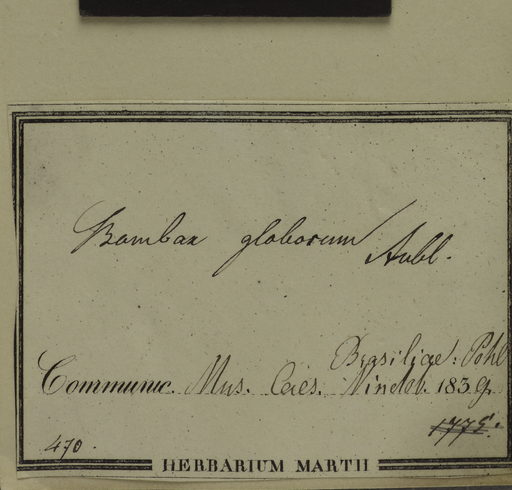 Bombax globosum Aubl.
Brasiliae: Pohl
Communic. Mus. Caes. Vindob. 1839.
1775.
470.
HERBARIUM MARTII